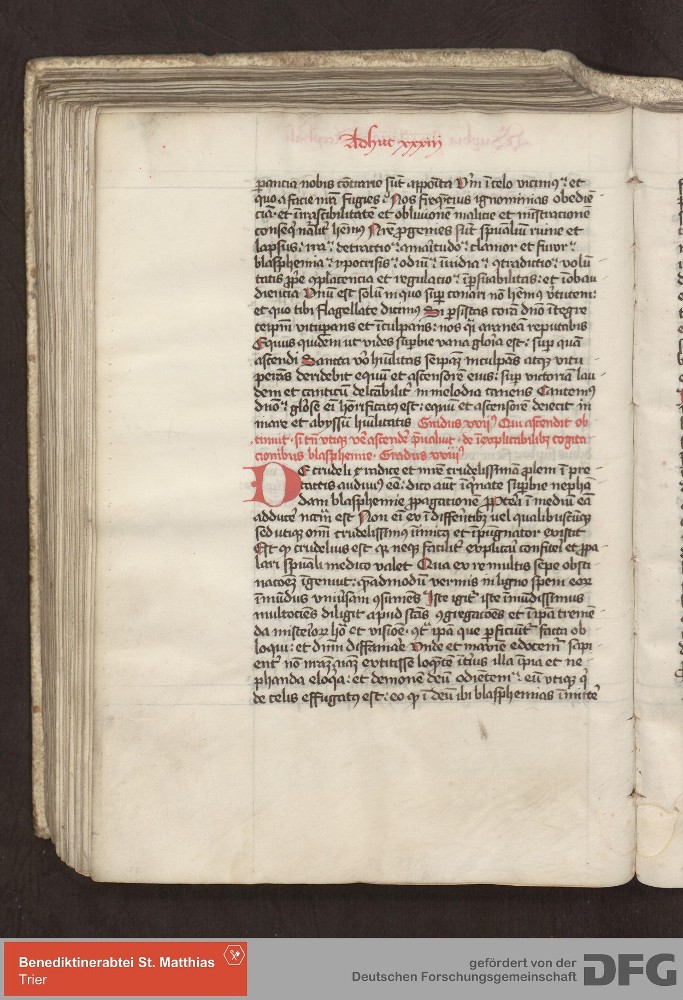 Adhuc xxxiij
parancia nobis cōtrario sūt apposita Vnī ī celo vicimus ꝛ et
quo a facie mea fugies ꝛ Nos freq̄ntius ignominias obediē
ciā· et īrascibilitatē et obliuionē malicie et mīstracionē
conseq̄ nālit hēmꝰ Nr̄e ꝓgenies sūt spūaliū ruine et
lapsus: ira ꝛ detractio ꝛ amaritudo ꝛ clamor et furor ꝛ
blasphemia ꝛ ypocrisis ꝛ odiū ꝛ īuidia ꝛ ꝯtradictio ꝛ volū
tatis ꝓp̄e ꝯplacencia et regulatio ꝛ īpsuabilitas: et īobau
diencia Vnū est solū in quo sup̱ conari nō hēmꝰ v̄tutem:
et quo tibi flagellate dicimꝰ Si ꝑsistas corā dn̄o ītegre
teip̄m vitupans et īculpans: nos q̄ araneā reputabis
Equus quidem ut vides supbie vana gloīa est: sup quā
ascendi Sancta vo hūilitas seipaꝫ inculpans atqꝫ vitu
perās deridebit equū et ascensorē eius: sup victoriā lau
dem et canticū delcābilit̄ in melodia canens Cantemꝰ
dn̄o ꝛ glōse eī hōrificatꝰ est: equū et ascensorē deiecit in
mare et abyssū hūilitatis Gradus xxijꝰ Qui ascendit ob
tinuit· si tn̄ vtiqꝫ ve ascende p̄ualuit· de īexplicabilibꝫ cogita
cionibus blasphemie· Gradus xxiijꝰ
DE crudeli ꝛ radice et mr̄e crudelissimā ꝓlem ī pre
tactis audiuimꝰ eē: dico aut īq̄nate supbie nephā
dam blasphemie ꝓpagatione ꝓpterea ī mediū eā
adduce nccr̄m est Non eī ex ī differētibꝫ uel qualibuscūqꝫ
sed utiqꝫ om̄ī crudelissimꝰ īimicꝰ et īpugnator existit
Et qꝫ crudelius est qꝛ neqꝫ facilit̄ explicari confiteri et ꝓpa
lari spūali medico valet Qua ex re multis sepe obsti
nacoeꝫ īgenuit: q̄admodū vermis in ligno spem eoꝝ
īmūdus vniūsam ꝯsumēs Iste igit iste īmūdissimus
multociēs diligit apud scās ꝯgregacōes et ī ipa tremē
da misterioꝝ horā et visionē· ꝯt ipā que ꝑficiūt sacra ob
loqui: et dn̄m diffamare Vnde et maxime edocem̄ sapi
ent nō nraꝫ aīaꝫ extitisse loq̄ntē ītius illa īpia et ne
phanda eloq̄a: et demonē deū odientem ꝛ eū vtiqꝫ q̄
de celis effugatꝰ est: eo qꝫ ī deū ibi blasphemias īmitte
Benediktinerabtei St. Matthias
Trier
gefördert von der
Deutschen Forschungsgemeinschaft
DFG